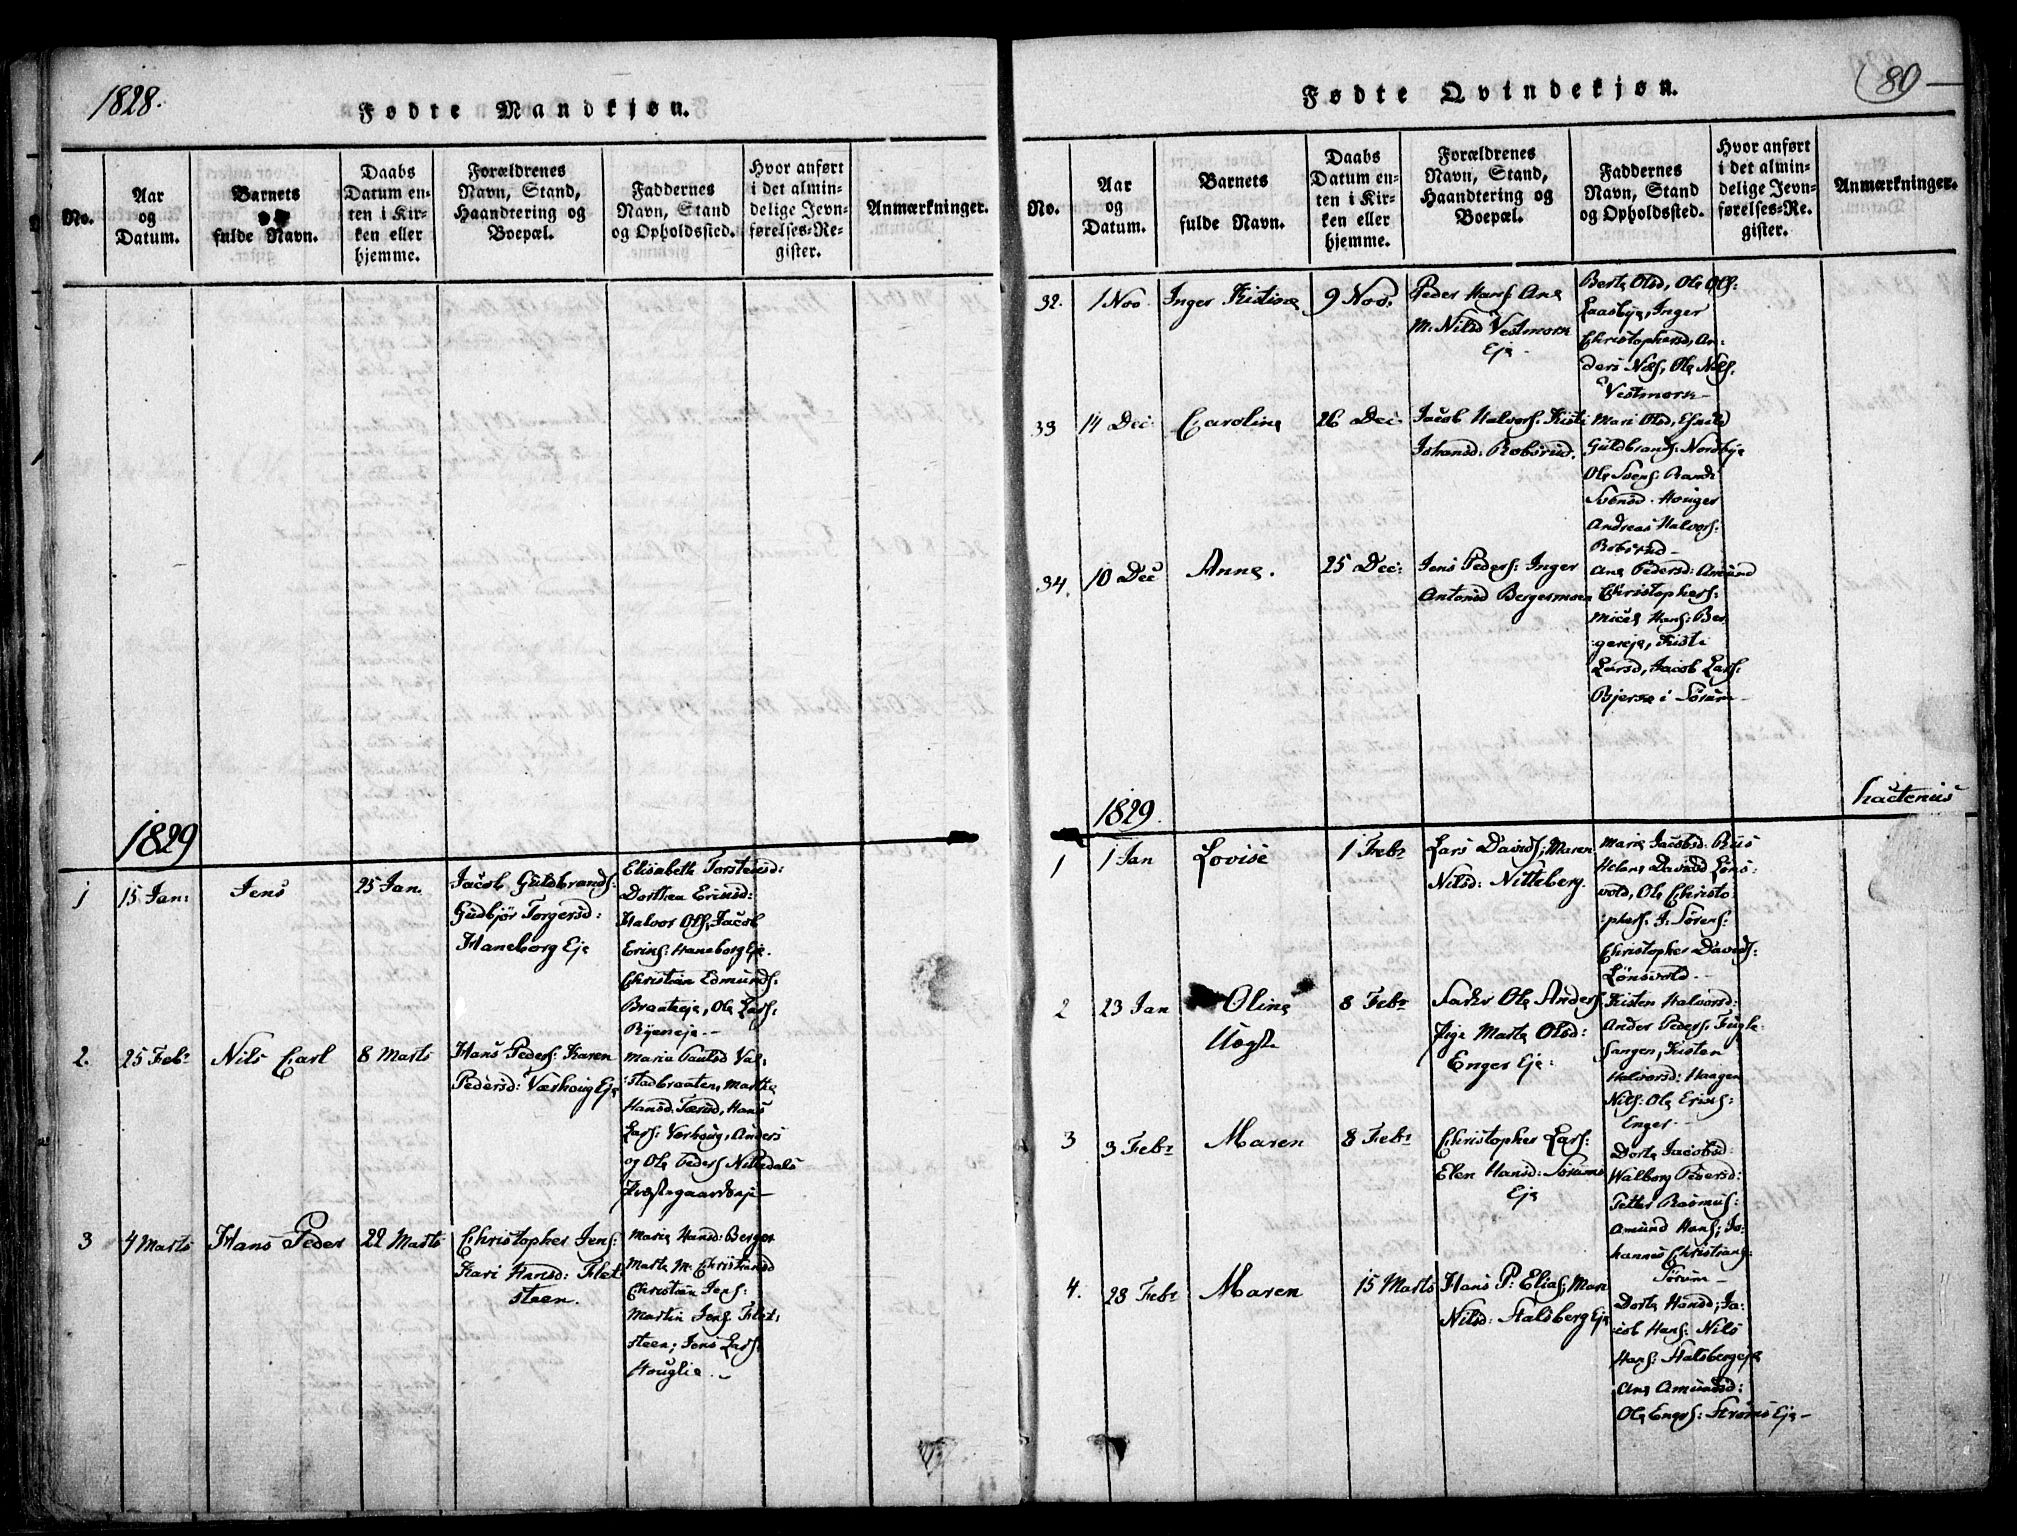 1828.
Fødte Mandkjøn.
No.
Aar
og
Datum.
Barnets
fulde Navn.
Daabs
Datum en-
ten i Kir-
ken eller
hjemme.
Forældrenes
Navn, Stand,
Haandtering og
Boepæl.
Faddernes
Navn, Stand
og Opholdssted.
Hvor anført
i det almin-
delige Jevn-
førelses-Re-
gister.
Anmærkninger.
1829
1
15 Jan:
Jens
25 Jan.
Jacob Guldbrands:
Gudbjør Torgersd:
Haneborg Eje
Elisabeth Torstensd:
Dorthea Ericsd:
Halvor Ols, Jacob
Erics: Haneborg Eje.
Christian Edmunds.
Braateeje, Ole Lars.
Ryeneje.-
2.
25 Feb:
Nils Carl
8 Marts
Hans Peders: Karen
Pedersd: Værhoug Eje
Maria Paulsd Val.
stadbraaten, Marthe
Hansd: Hans
Lars: Værhoug, Anders
og Ole Peders Nittedals
Præstegaardseje-
3
4 Marts
Hans Peder
22 Marts
Christopher Jens:
Kari Hansd: Flet
steen.
Marie Hansd: Berger
Marte M. Christiansd
Christian Jens:
Martin Jens Flet,
steen; Jens Lars.
Houglie.-
Fødte Qvindekjøn.
80
No.
Aar
og
Datum.
Barnets
fulde Navn.
Daabs
Datum en-
ten i Kir-
ken eller
hjemme.
Forældrenes
Navn, Stand,
Haandtering og
Boepæl.
Faddernes
Navn, Stand
og Opholdssted.
Hvor anført
i det almin-
delige Jevn-
førelses-Re-
gister.
Anmærkninger.
32.
1 Nov.
Inger Kistine
9 Nov.
Peder Hans Ane
M. Nilsd Vestmorn
Eje-
Berte Olsd, Ole Ols:
Laasbye, Inger
Christophersd, An-
ders Nils, Ole Nils.
Vestmorn-
33
14 Dec:
Caroline
26 Dec:
Jacob Halvors: Kisti
Johansd: Robsrud.
Mari Olsd,
Guldbrands: Nordbye
Ole Svens: Randi
Svensd. Houger
Andreas Halvors:
Robsrud-
34.
10 Dec
Anne.
25 Dec:
Jens Peders: Inger
Antonsd Bergermoen
Ane Pedersd: Amund
Christophers:
Micel Hans: Ber
gereje, Kisti
Larsd, Jacob Lars:
Bjerke i Sørum-
hactenus
1829.
1
1 Jan
Lovise
1 Feb:
Lars Davids; Maren
Nilsd: Nitteberg.
Marie Jacobsd: Rus
Helene Davidsd Løns-
vold, Ole Christo
phers. J. Sørens:
Christopher Davids:
Lønsvold.-
2
23 Jan
Oline
8 Feb:
Ole Anders
Pige Marte Olsd:
Enger Eje:
Kisten Halvorsd:
Ander Peders: Fugle
sangen, Kisten
Halvorsd: Haagen
Nils: Ole Erics:
Enger.-
3
3 Feb:
Maren
8 Feb:
Christopher Lars:
Elen Hansd: Sørums
Eje
Dorte Jacobsd:
Walborg Pedersd:
Petter Rasmus:
Amund Hans; Jo-
hannes Christians:
Sørum-
4.
28 Feb:
Maren
15 Marts
Hans P: Elias; Mari
Nilsd: Stalsberg Eje
Dorte Hansd; Ja-
cob Hans: Nils
Hans: Stalsbergeje
Ane Amundsd:
Ole Engers: Strøms Eje-